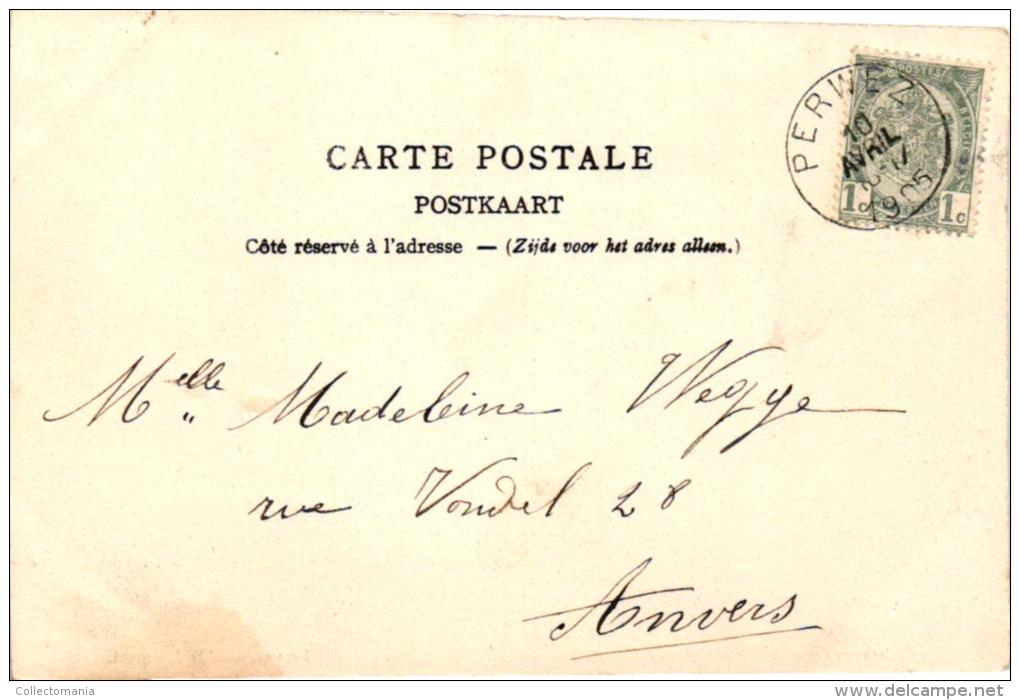 CARTE POSTALE
POSTKAART
Côté réservé à l'adresse — (Zijde voor het adres alleen.)
PERWEZ
10
AVRIL
1905
POSTES
1c 1c
Melle Madeleine Wegge
rue Vondel 28
Anvers
Collectomania
delcampe.net